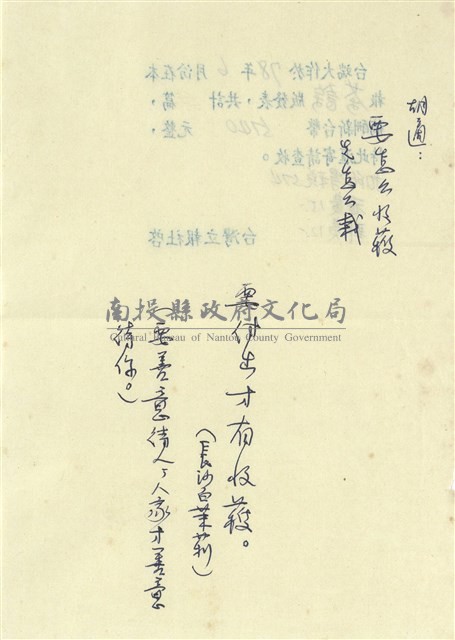 胡適：
要怎么收穫
先怎么栽
需付出才有收穫。
（長沙白茉莉）
要善意待人，人家才善意
待你。）
台端大作於78年6月份在本
報 版發表，共計 篇，
酬新台幣 元整，
此 寄請查收。
台灣立報社啓
南投縣政府文化局
Cultural Bureau of Nantou County Government